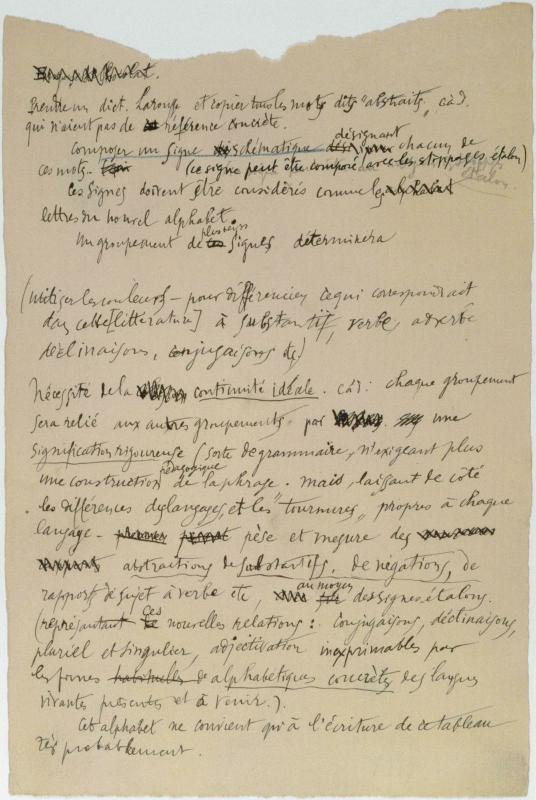 Prendre un dict. Larousse et copier tous les mots dits "abstraits", càd.
qui n'aient pas de référence concrète.
Composer un signe schématique désignant chacun de
ces mots. (ce signe peut être composé avec les stoppages étalon)
Ces signes doivent être considérés comme les
lettres du nouvel alphabet.
Un groupement de plusieurs signes déterminera
(utiliser les couleurs – pour différencier ce qui correspondrait
dans cette [littérature] à substantif, verbe, adverbe
déclinaisons, conjugaisons etc.)
Nécessité de la continuité idéale. càd: chaque groupement
sera relié aux autres groupements par une
signification rigoureuse (sorte de grammaire, n'exigeant plus
une construction pédagogique de la phrase. mais, laissant de côté
les différences des langages, et les "tournures" propres à chaque
langage – pèse et mesure des
abstractions de substantifs, de négations, de
rapports de sujet à verbe etc, au moyen des signes étalons.
(représentant ces nouvelles relations: conjugaisons, déclinaisons,
pluriel et singulier, adjectivation inexprimables par
les formes alphabétiques concrètes des langues
vivantes présentes et à venir.).
Cet alphabet ne convient qu'à l'écriture de ce tableau
très probablement.